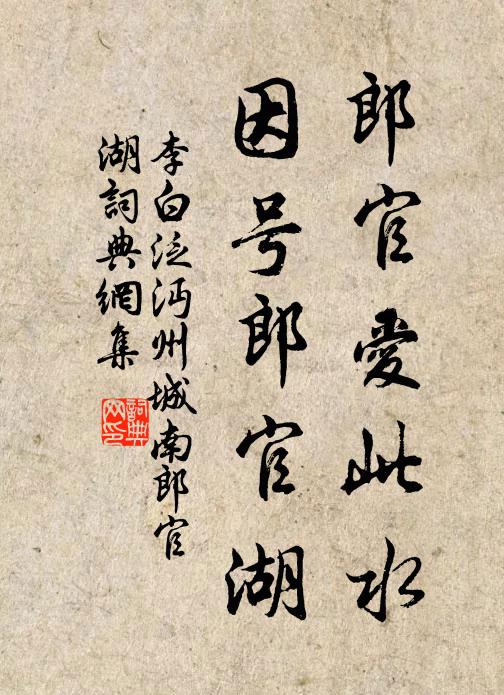 郎官愛此水
因号郎官湖
李白泛沔州城南郎官
湖詞典網集
詞典
网印